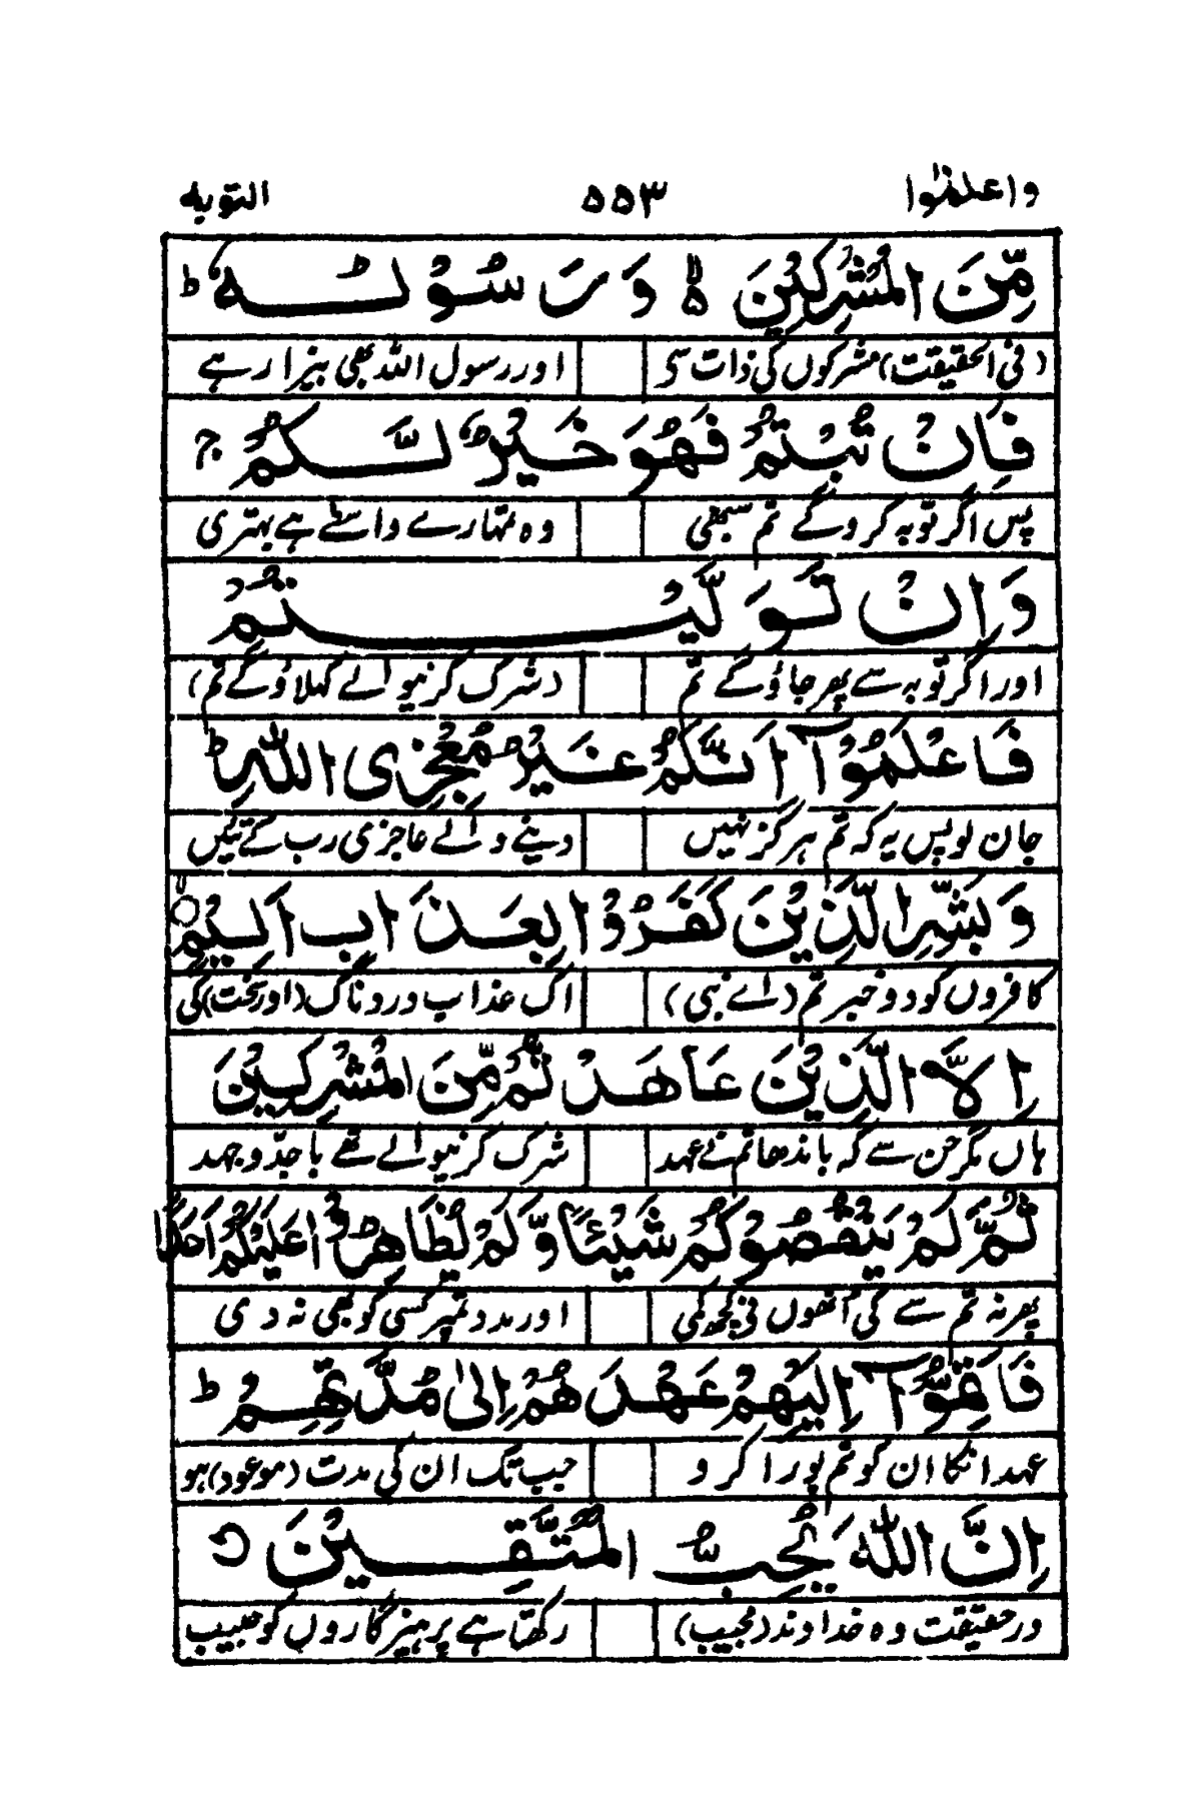 واعلمٰوا ۵۵۳ التوبه
مِّنَ الْمُشْرِكِيْنَ ۙ۬ وَرَسُوْلُـهٗ ؕ
(فی الحقیقت) مشرکوں کی ذات سی اور رسول اللہ بھی بیزار ہے
فَاِنْ تُبْتُمْ فَهُوَ خَيْرٌ لَّـكُمْ ۚ
پس اگر توبہ کروگے تم سبھی وہ تمہارے واسطے ہے بہتری
وَاِنْ تَوَلَّيْـتُمْ
اور اگر توبہ سے پھر جاؤگے تم (شرک کرنیوالے کہلاؤگے تم)
فَاعْلَمُوْۤا اَنَّـكُمْ غَيْرُ مُعْجِزِى اللّٰهِ ؕ
جان لو پس یہ کہ تم ہرگز نہیں دینے والے عاجزی رب کے تئیں
وَبَشِّرِ الَّذِيْنَ كَفَرُوْا بِعَذَابٍ اَلِيْمٍۙ
کافروں کو دو خبر تم (اے نبی) اک عذاب دردناک (اور سخت) کی
اِلَّا الَّذِيْنَ عَاهَدْتُّمْ مِّنَ الْمُشْرِكِيْنَ
ہاں مگر جن سے کہ باندھا تم نے عہد شرک کرنیوالے تھے باجدّ و جہد
ثُمَّ لَمْ يَنْقُصُوْكُمْ شَيْئًا وَّلَمْ يُظَاهِرُوْا عَلَيْكُمْ اَحَدًا
پھر نہ تم سے کی اُنھوں نی کچھ کمی اور مدد تمپر کسی کو بھی نہ دی
فَاَتِمُّوْۤا اِلَيْهِمْ عَهْدَهُمْ اِلٰى مُدَّتِهِمْ ؕ
عہد انکا ان کو تم پورا کرو جب تک ان کی مدت (موعود) ہو
اِنَّ اللّٰهَ يُحِبُّ الْمُتَّقِـيْنَ
درحقیقت وہ خداوند (مجیب) رکھتا ہے پرہیزگاروں کو حبیب